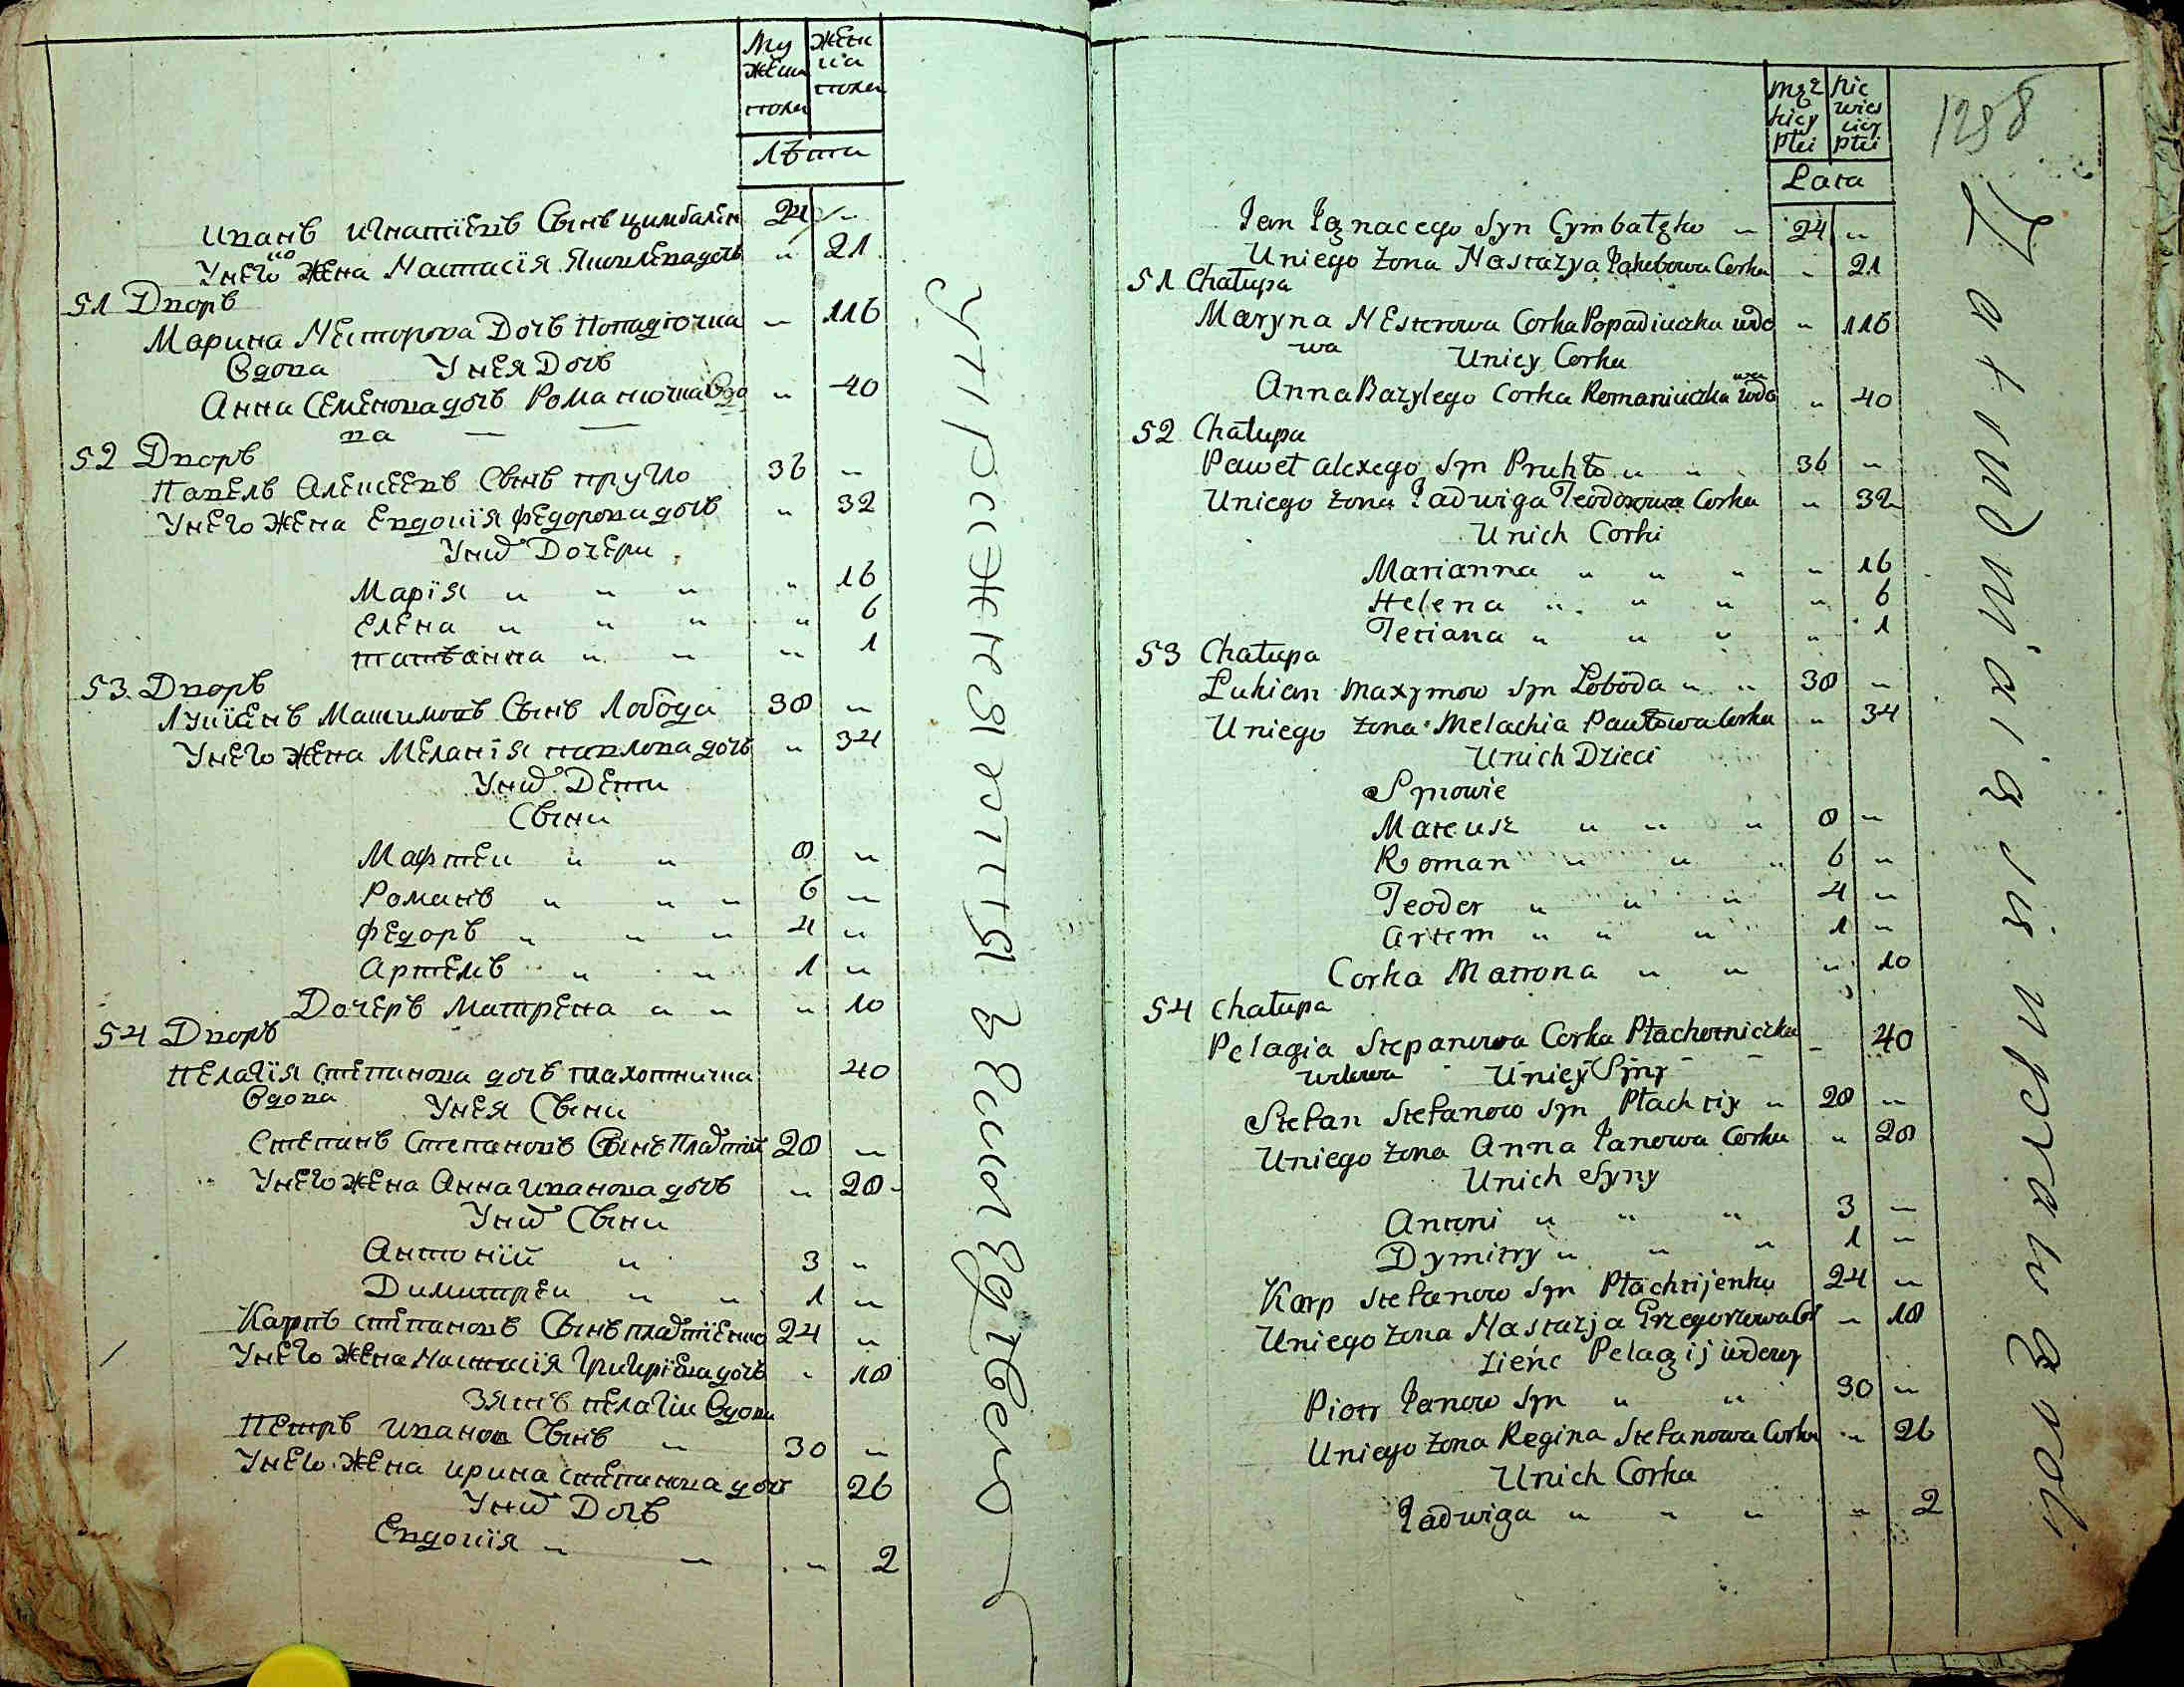 Му
жеск
полу
Жен
ска
полу
Лѣта
Иванъ Игнатіевъ Сынъ Цимбален
ко
24 "
Унего Жена Настасія Яковлева дочь " 21
51 Дворъ
Марина Несторова Дочь Попадючка " 116
Вдова Унея Дочь
Анна Семенова дочь Романючка Вдо " 40
ва
52 Дворъ
Павелъ Алексеевъ Сынъ пругло 36 "
Унего Жена Евдокія Федорова дочь " 32
Унихъ Дочери
Марія " " " " 16
Елена " " " " 6
татьянна " " " 1
53 Дворъ
Лукіянъ Макимовъ Сынъ Лобода 38 "
Унего Жена Меланія павлова дочь " 34
Унихъ Дети
Сыни
Мафтеи " " 8 "
Романъ " " " 6 "
Федоръ " " " 4 "
Артемъ " " 1 "
Дочеръ Матрена " " " 10
54 Дворъ
Пелагія степанова дочь плахотничка 40
Вдова Унея Сыни
Степанъ Степановъ Сынъ Плахтій 28 "
Унего Жена Анна Иванова дочь " 28
Унихъ Сыни
Антоній " 3 "
Димитреи " " 1 "
Карпъ степановъ Сынъ плахтіенко 24 "
Унего Жена Настасія Григоріева дочь " 18
Зять пелагіи Вдови
Петръ Иванов Сынъ " 30 "
Унего Жена Ирина степанова дочь 26
Унихъ Дочь
Евдокія " " " 2
1298
męz
kiey
płci
nie
wies
ciey
płci
Lata
Jan Ignacego Syn Cymbalęko " 24 "
Uniego Żona Nastazya Jakubowa Corka " 21
51 Chałupa
Maryna Nesterowa Corka Popadiuczka wdo " 116
wa Uniey Corka
Anna Bazylego Corka Romaniuczka wdo
wa
" 40
52 Chałupa
Paweł alexego Syn Pruhło " " 36 "
Uniego Żona Jadwiga Teodorowa Corka " 32
Unich Corki
Marianna " " " " 16
Helena " " " " 6
Teciana " " " " 1
53 Chałupa
Łukian Maxymow Syn Łoboda " " 38 "
Uniego Żona Melachia Pawłowa Corka " 34
Unich Dzieci
Synowie
Mateusz " " " 8 "
Roman " " " 6 "
Teodor " " " 4 "
Artem " " " 1 "
Corka Matrona " " " 10
54 Chałupa
Pelagia Stepanowa Corka Płachotniczka 40
wdowa Uniey Syny
Stefan Stefanow Syn Płachtiy " 28 "
Uniego Żona Anna Janowa Corka " 28
Unich Syny
Antoni " " " 3 "
Dymitry " " " 1 "
Karp Stefanow Syn Płachtijenko 24 "
Uniego Żona Nastazja Grzegorzowa Cor " 18
Zienć Pelagij wdowy
Piotr Janow Syn " " 30 "
Uniego Żona Regina Stefanowa Corka " 26
Unich Corka
Jadwiga " " " " 2